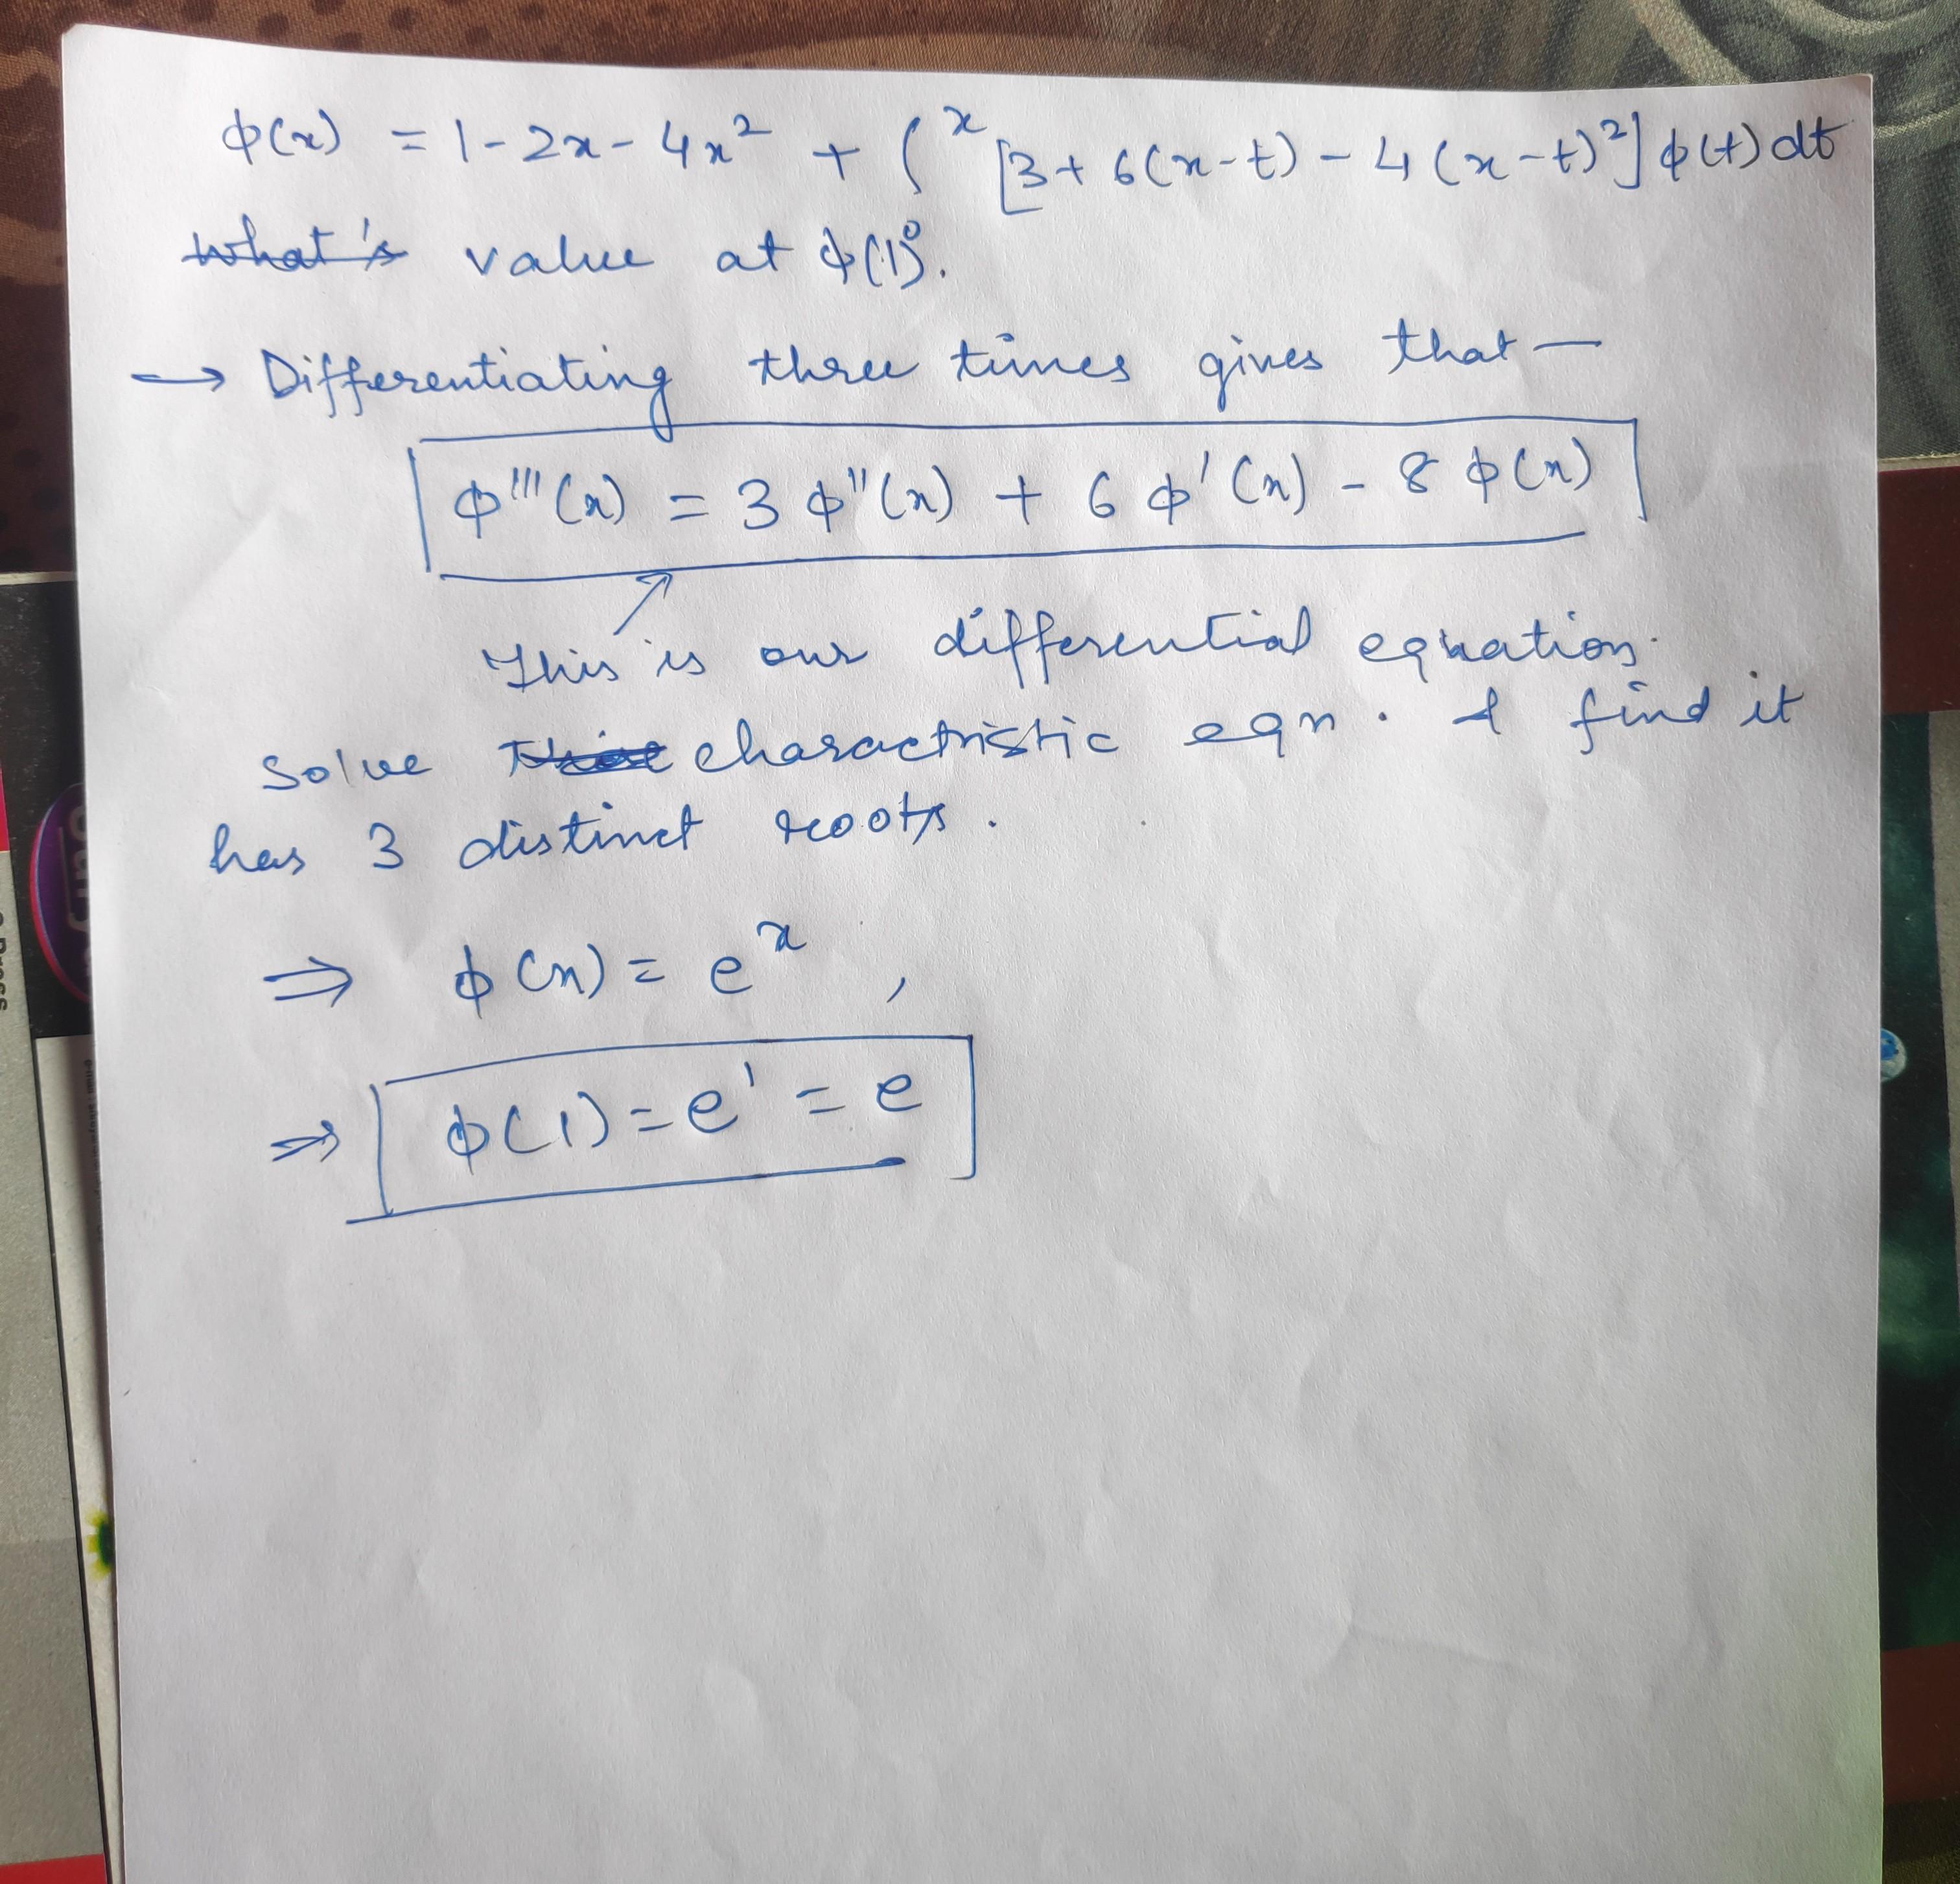 ϕ(x) = 1-2x-4x² + ∫₀ˣ [3+6(x-t)-4(x-t)²]ϕ(t)dt
What's value at ϕ(1).
→ Differentiating three times gives that —
ϕ'''(x) = 3ϕ''(x) + 6ϕ'(x) - 8ϕ(x)
This is our differential equation.
Solve charactristic eqn. I find it
has 3 distinct roots.
⇒ ϕ(x) = eˣ ,
⇒ ϕ(1) = e¹ = e